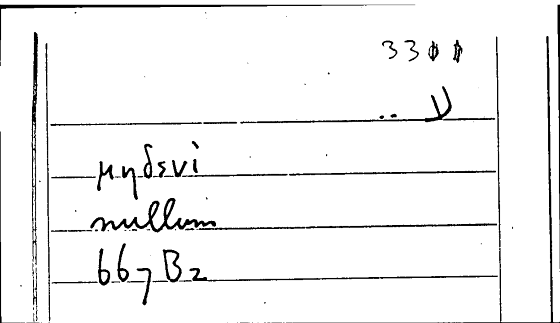 3300
μηδενὶ
nullum
667 B2